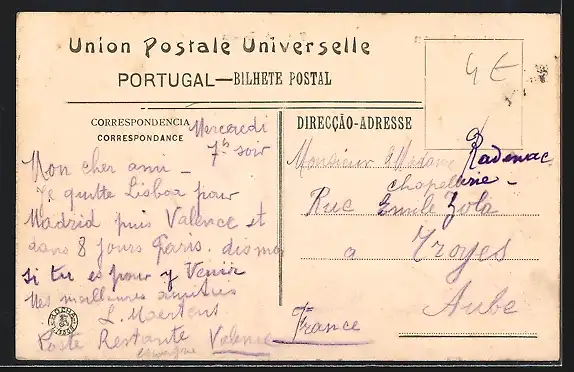 Union Postale Universelle
PORTUGAL—BILHETE POSTAL
4€
CORRESPONDENCIA
CORRESPONDANCE
Mercredi
7h soir
Mon cher ami -
Je quitte Lisboa pour
Madrid puis Valence et
dans 8 jours Paris. dis moi
si tu es pour y venir
Mes meilleures amitiés
L. Maertens
Poste Restante Valence
espagne
DIRECÇÃO-ADRESSE
Monsieur & Madame
chapellerie -
Rue Emile Zola
a Troyes
Aube
France